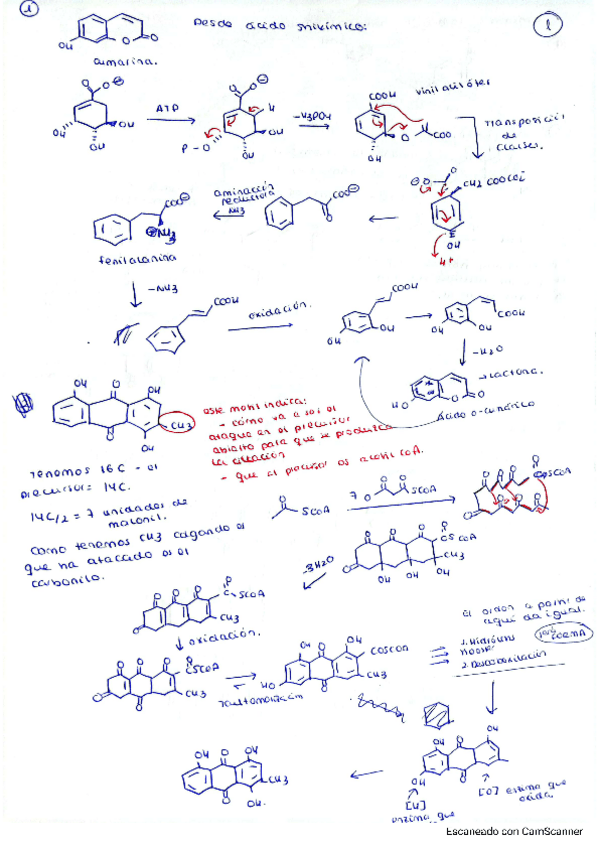 1
Desde ácido shikímico:
1
OH
O
O
cumarina.
O
O⊖
OH
OH
OH
ATP
O
O⊖
H
P-O
OH
OH
-H3PO4
COOH
O
COO
OH
vinil
Transposición
de
Claisen.
O
CH2
OH
H+
COO⊖
O
aminación
reductora
NH3
COO⊖
⊕NH3
fenilalanina
-NH3
COOH
oxidación.
COOH
OH
OH
COOH
OH
OH
-H2O
HO
O
O
→ Lactona.
Ácido o-cumárico
OH
O
OH
CH3
O
OH
este metil indica:
- cómo va a ser el
ataque en el precursor
abierto para que se produzca
la ciclación
- que el precursor es acetil CoA.
Tenemos 16C - el
precursor = 14C.
14C/2 = 7 unidades de
malonil.
Como tenemos CH3 colgando es
que ha atacado es el
carbonilo.
O
SCoA
7
O
O
SCoA
COSCoA
O
SCoA
CH3
OH
OH
OH
-3H2O
O
SCoA
CH3
O
oxidación.
O
O
O
O
SCoA
CH3
tautomerización
OH
O
OH
COSCoA
CH3
HO
O
El orden a partir de
aquí da igual.
2. Descarboxilación
OH
O
OH
OH
O
[H]
enzima que
[O] enzima que
oxida
OH
O
OH
CH3
O
OH.
Escaneado con CamScanner